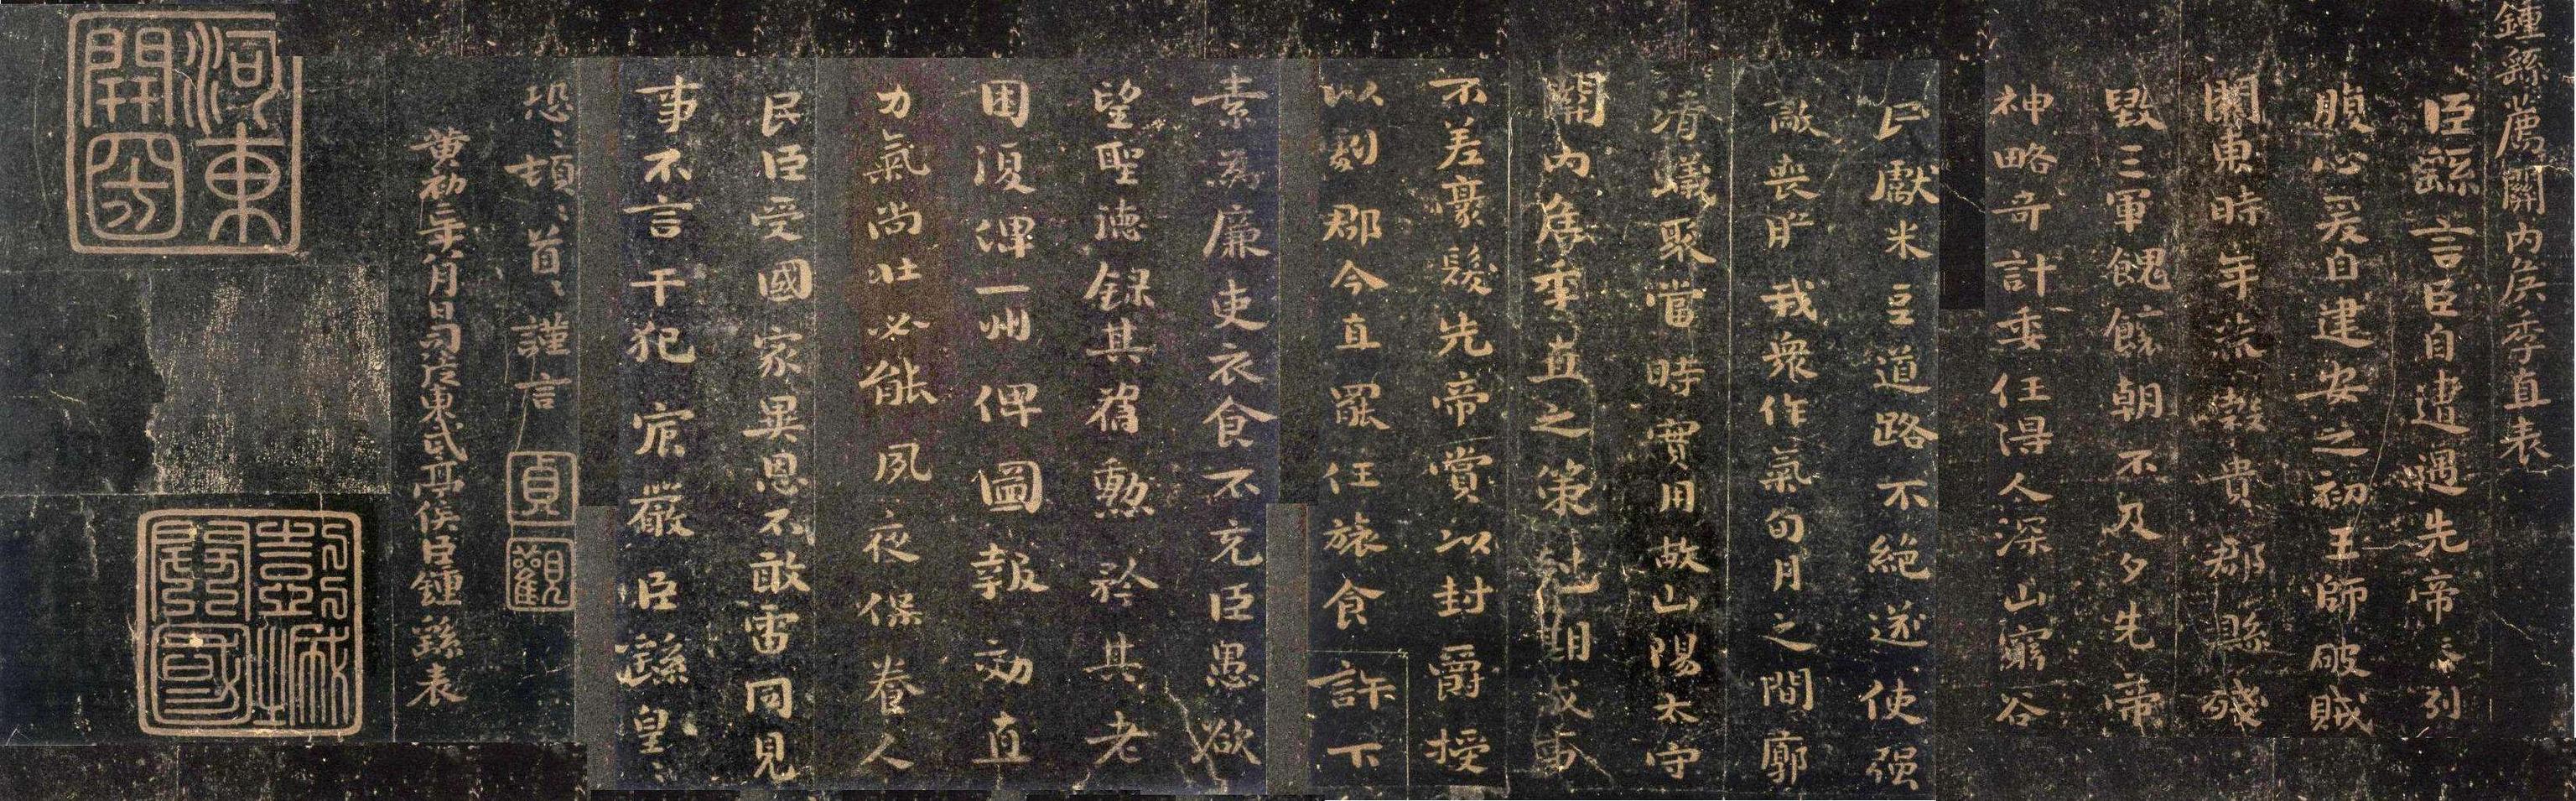 鍾繇薦關內侯季直表
臣繇言臣自遭遇先帝忝列
腹心爰自建安之初王師破賊
關東時年荒穀貴郡縣殘
毀三軍餽饟朝不及夕先帝
神略奇計委任得人深山窮谷
民獻米豆道路不絕遂使强
敵喪膽我衆作氣旬月之間廓
清蟻聚當時實用故山陽太守
關內侯季直之策剋期成事
不差豪髮先帝賞以封爵授
以劇郡今直罷任旅食許下
素爲廉吏衣食不充臣愚欲
望聖德錄其舊勳矜其老
困復俾一州俾圖報効直
力氣尚壯必能夙夜保養人
民臣受國家異恩不敢雷同見
事不言干犯宸嚴臣繇皇〻
恐〻頓〻首〻謹言
黃初二年八月日司徒東武亭侯臣鍾繇表
貞
觀
河東
開國